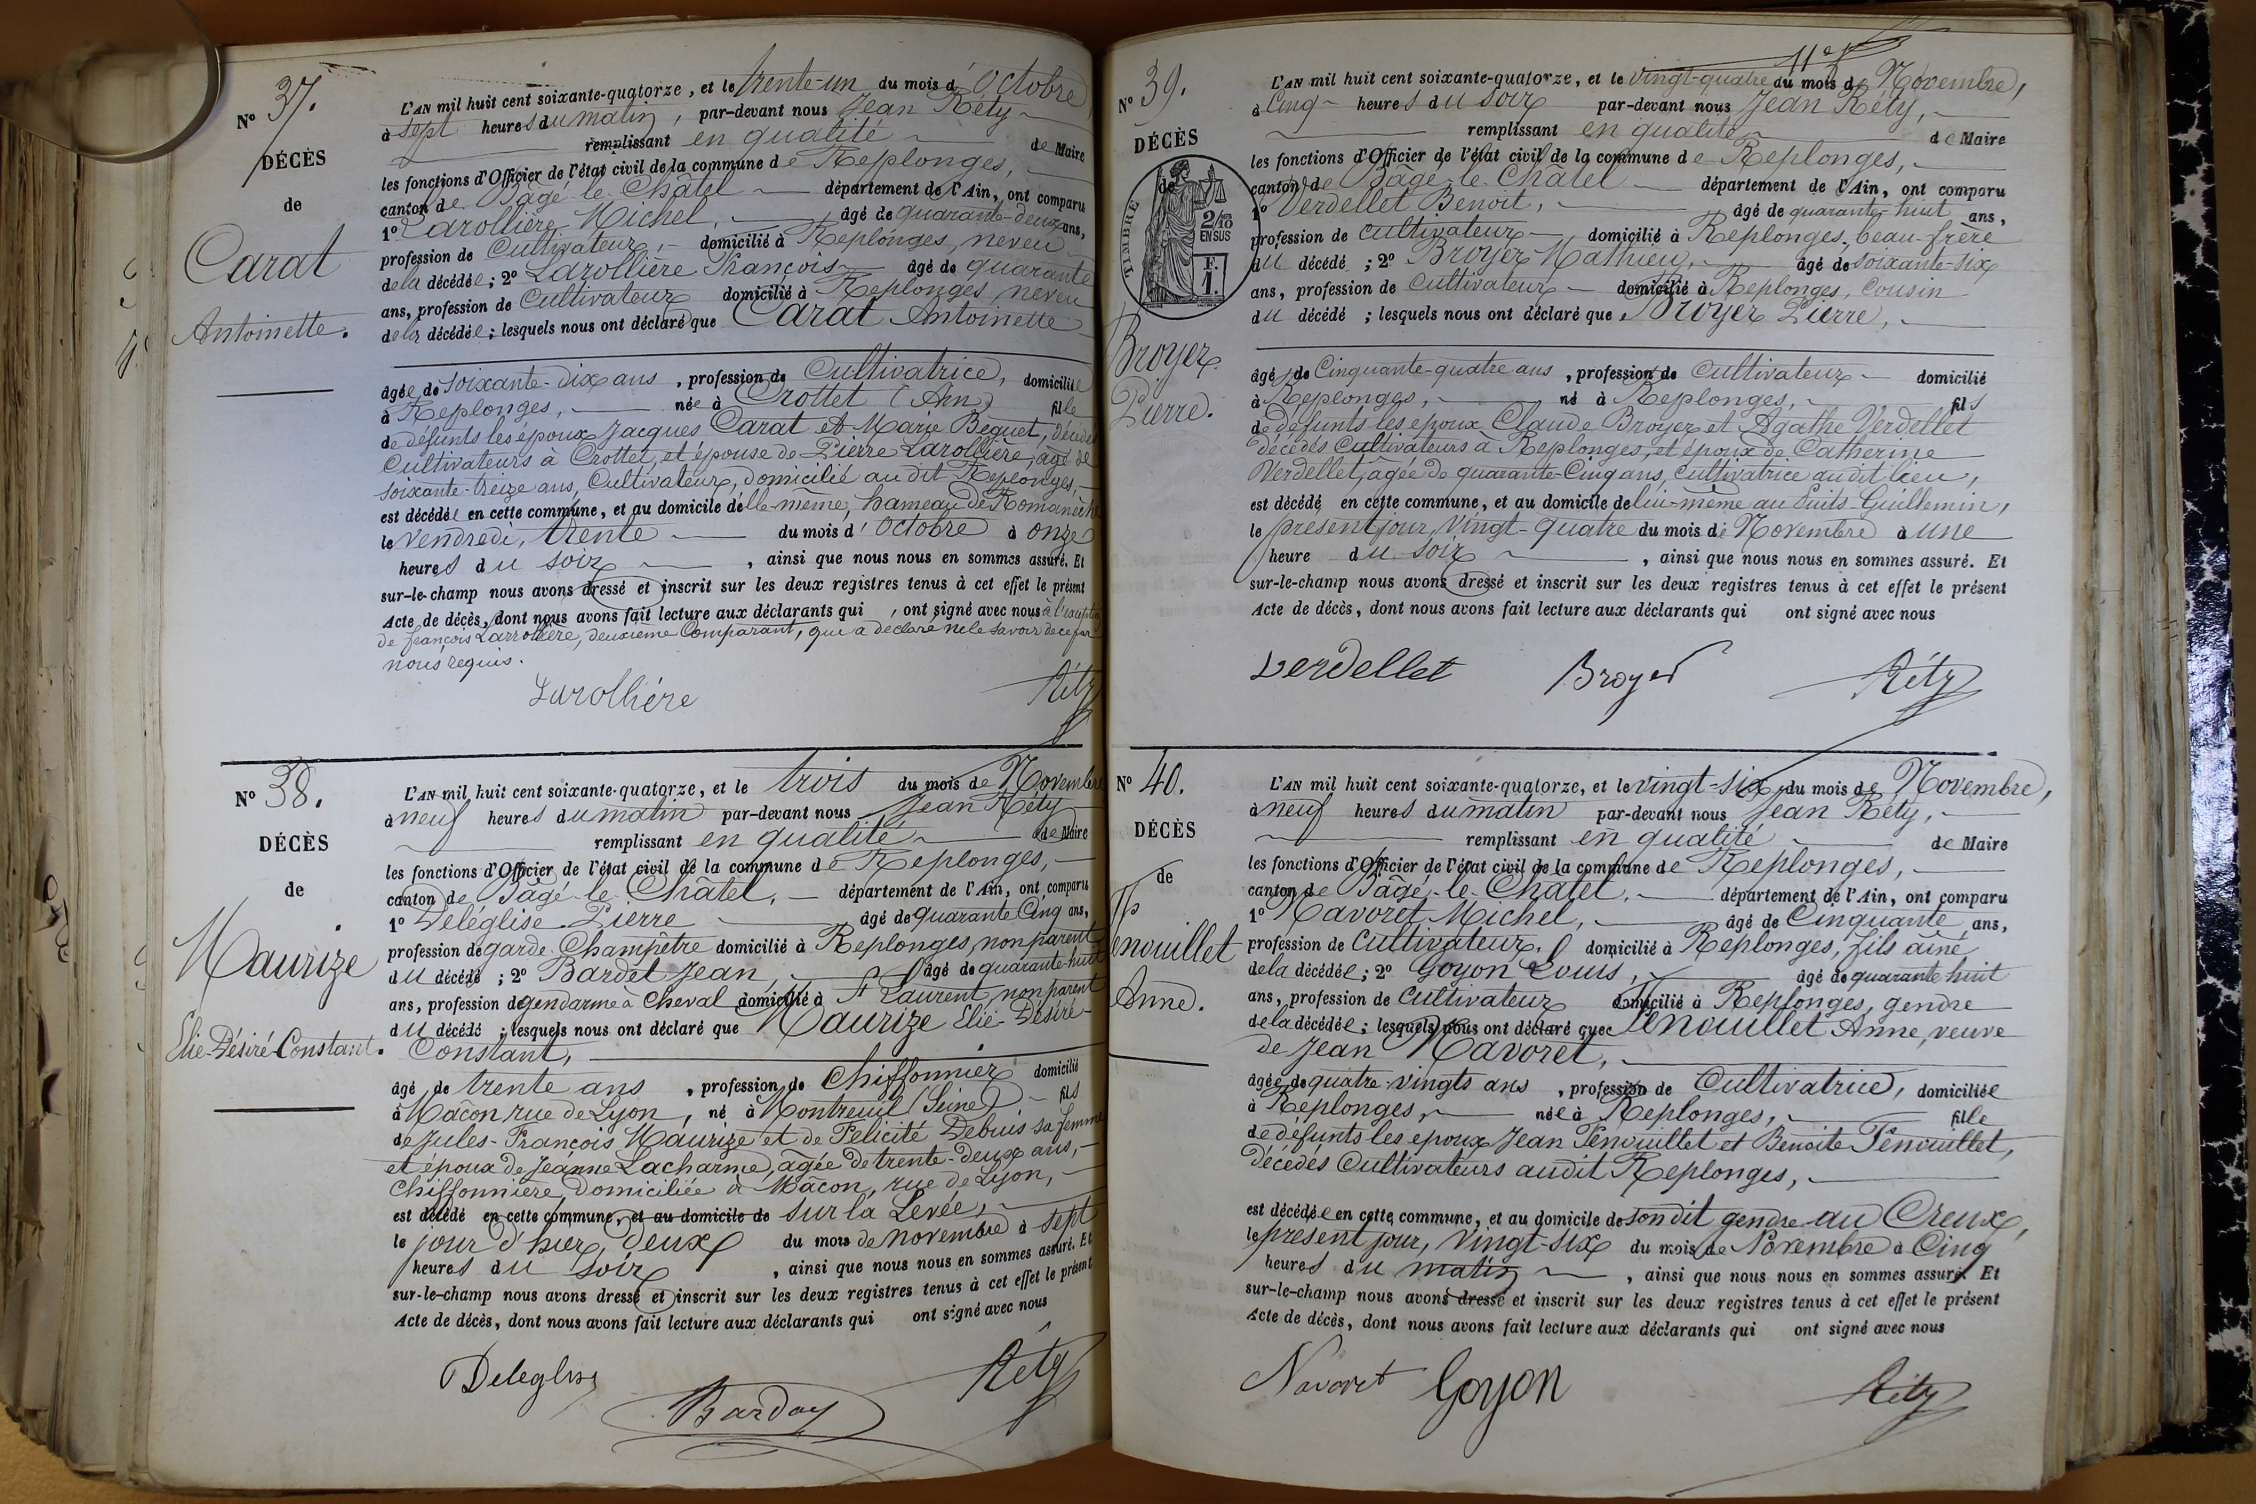 N° 37.
DÉCÈS
de
Carat
Antoinette.
L'AN mil huit cent soixante-quatorze, et le trente-un du mois d'Octobre
à sept heures du matin, par-devant nous Jean Réty
remplissant en qualité de Maire
les fonctions d'Officier de l'état civil de la commune de Replonges,
canton de Bâgé-le-Châtel département de l'Ain, ont comparu
1° Larollière Michel, âgé de quarante-deux ans,
profession de Cultivateur, domicilié à Replonges, neveu
de la décédée; 2° Larollière François âgé de quarante
ans, profession de Cultivateur domicilié à Replonges neveu
de la décédée; lesquels nous ont déclaré que Carat Antoinette
âgée de soixante-dix ans, profession de Cultivatrice, domiciliée
à Replonges, née à Crottet (Ain) fille
de défunts les époux Jacques Carat et Marie Beguet, décédés
Cultivateurs à Crottet, et épouse de Pierre Larollière, âgé de
soixante-treize ans, Cultivateur, domicilié au dit Replonges,
est décédée en cette commune, et au domicile d'elle-même, hameau de Romanèche
le vendredi, trente du mois d'Octobre à onze
heures du soir, ainsi que nous nous en sommes assuré. Et
sur-le-champ nous avons dressé et inscrit sur les deux registres tenus à cet effet le présent
Acte de décès, dont nous avons fait lecture aux déclarants qui, ont signé avec nous à l'exception
de françois Larrollière, deuxième Comparant, qui a déclaré ne le savoir de ce par
nous requis.
Larollière Réty
N° 38.
DÉCÈS
de
Maurize
Elie-Désiré-Constant.
L'AN mil huit cent soixante-quatorze, et le trois du mois de Novembre
à neuf heures du matin par-devant nous Jean Réty
remplissant en qualité de Maire
les fonctions d'Officier de l'état civil de la commune de Replonges,
canton de Bâgé-le-Châtel, département de l'Ain, ont comparu
1° Deléglise Pierre âgé de quarante Cinq ans,
profession de garde-Champêtre domicilié à Replonges, non parent
du décédé; 2° Bardet Jean, âgé de quarante-huit
ans, profession de gendarme à Cheval domicilié à St Laurent, non parent
du décédé; lesquels nous ont déclaré que Maurize Elie-Désiré-
Constant,
âgé de trente ans, profession de Chiffonnier domicilié
à Mâcon rue de Lyon, né à Montreuil (Seine) fils
de Jules-François Maurize et de Felicité Debuis sa femme
et époux de Jeanne Lacharme, âgée de trente-deux ans,
Chiffonnière, domiciliée à Mâcon, rue de Lyon,
est décédé en cette commune, et au domicile de sur la Levée,
le jour d'hier, deux du mois de novembre à sept
heures du soir, ainsi que nous nous en sommes assuré. Et
sur-le-champ nous avons dressé et inscrit sur les deux registres tenus à cet effet le présent
Acte de décès, dont nous avons fait lecture aux déclarants qui ont signé avec nous
Deleglise Réty
N° 39.
DÉCÈS
de
TIMBRE
2/10
EN SUS
F.
1.
Broyer
Pierre.
11e
L'AN mil huit cent soixante-quatorze, et le vingt-quatre du mois de Novembre,
à Cinq heures du soir par-devant nous Jean Réty,
remplissant en qualité de Maire
les fonctions d'Officier de l'état civil de la commune de Replonges,
canton de Bâgé-le-Châtel département de l'Ain, ont comparu
1° Verdellet Benoit, âgé de quarante-huit ans,
profession de cultivateur domicilié à Replonges, beau-frère
du décédé; 2° Broyer Mathieu, âgé de soixante-six
ans, profession de Cultivateur domicilié à Replonges, Cousin
du décédé; lesquels nous ont déclaré que, Broyer Pierre,
âgé de Cinquante-quatre ans, profession de Cultivateur domicilié
à Replonges, né à Replonges, fils
de défunts les époux Claude Broyer et Agathe Verdellet
décédés Cultivateurs à Replonges, et époux de Catherine
Verdellet, âgée de quarante-Cinq ans, cultivatrice audit lieu,
est décédé en cette commune, et au domicile de lui-même au Puits-Guillemin,
le présent jour, Vingt-quatre du mois de Novembre à une
heure du soir, ainsi que nous nous en sommes assuré. Et
sur-le-champ nous avons dressé et inscrit sur les deux registres tenus à cet effet le présent
Acte de décès, dont nous avons fait lecture aux déclarants qui ont signé avec nous
Verdellet Broyer Réty
N° 40.
DÉCÈS
de
Thenouillet
Anne.
L'AN mil huit cent soixante-quatorze, et le vingt-six du mois de Novembre,
à neuf heures du matin par-devant nous Jean Réty,
remplissant en qualité de Maire
les fonctions d'Officier de l'état civil de la commune de Replonges,
canton de Bâgé-le-Châtel, département de l'Ain, ont comparu
1° Navoret Michel, âgé de Cinquante ans,
profession de Cultivateur, domicilié à Replonges, fils aîné
de la décédée; 2° Goyon Louis, âgé de quarante huit
ans, profession de Cultivateur domicilié à Replonges, gendre
de la décédée; lesquels nous ont déclaré que Thenouillet Anne, veuve
de Jean Navoret,
âgée de quatre-vingts ans, profession de Cultivatrice, domiciliée
à Replonges, née à Replonges, fille
de défunts les époux Jean Tenouillet et Benoite Tenouillet,
décédés Cultivateurs audit Replonges,
est décédée en cette commune, et au domicile de son dit gendre au Creux,
le présent jour, Vingt-six du mois de Novembre à Cinq
heures du matin, ainsi que nous nous en sommes assuré. Et
sur-le-champ nous avons dressé et inscrit sur les deux registres tenus à cet effet le présent
Acte de décès, dont nous avons fait lecture aux déclarants qui ont signé avec nous
Navoret Goyon Réty